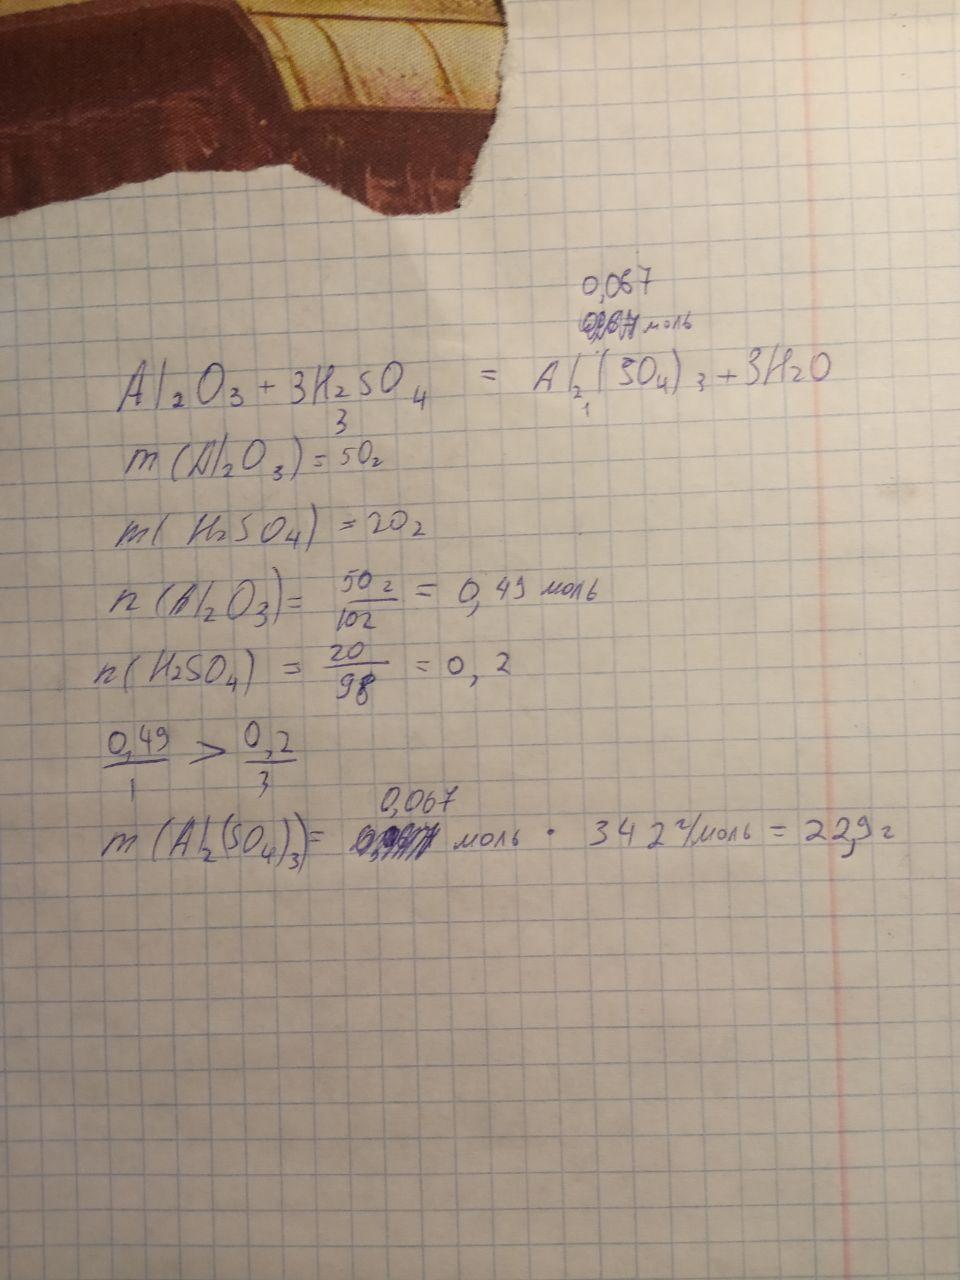 0,067
моль
Al₂O₃ + 3H₂SO₄ = Al₂(SO₄)₃ + 3H₂O
3 1
m(Al₂O₃) = 50г
m(H₂SO₄) = 20г
n(Al₂O₃) = 50г/102 = 0,49 моль
n(H₂SO₄) = 20/98 = 0,2
0,49/1 > 0,2/3
0,067
m(Al₂(SO₄)₃) = моль · 342 г/моль = 22,9г